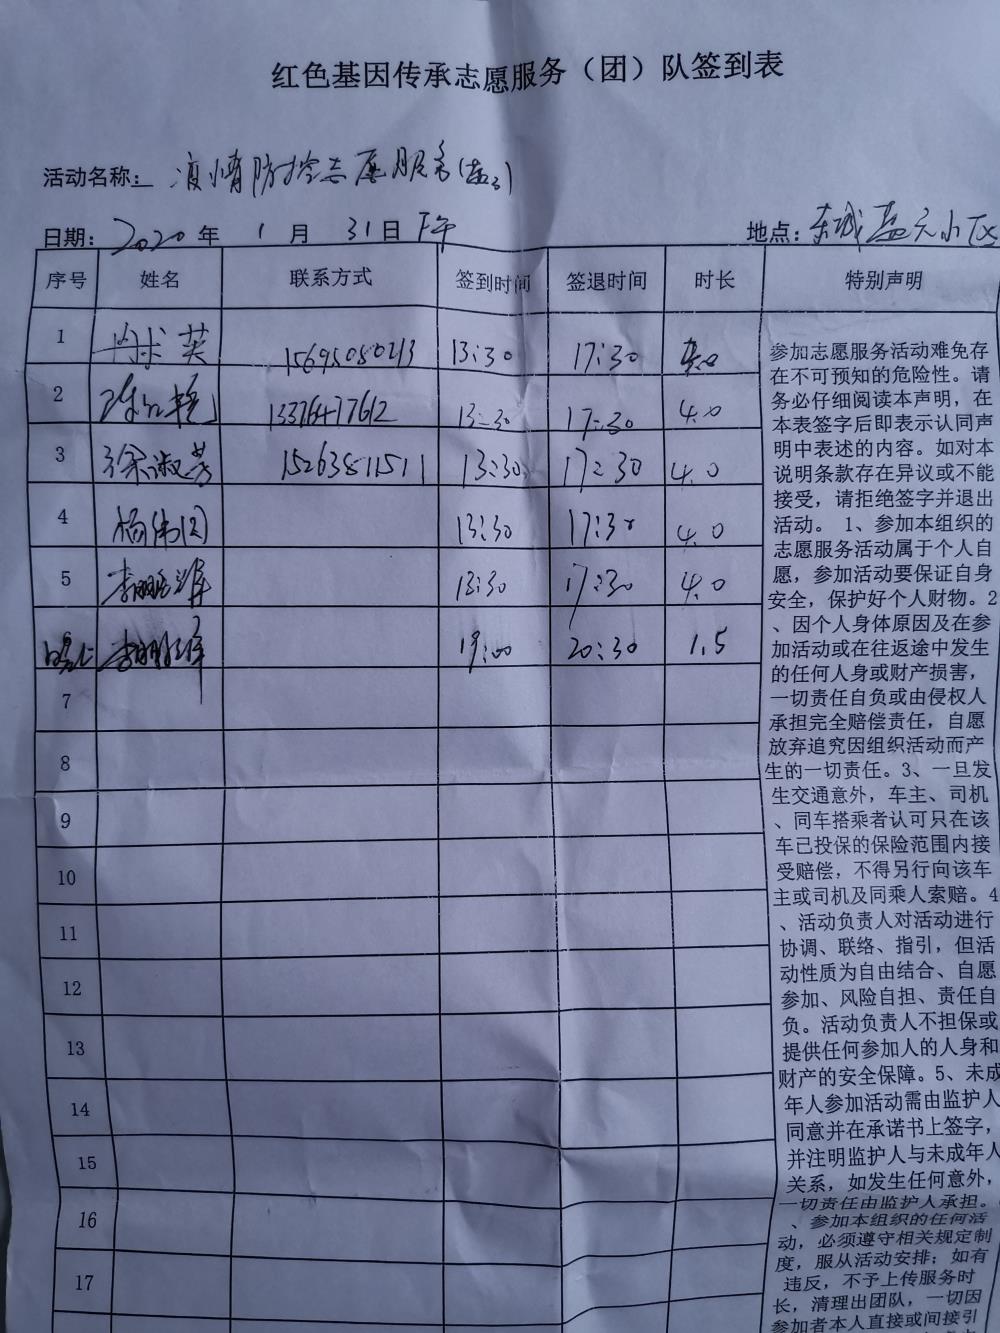 红色基因传承志愿服务（团）队签到表
活动名称：疫情防控志愿服务
日期：2020年 1月 31日下午 地点：东城蓝天小区
序号 姓名 联系方式 签到时间 签退时间 时长 特别声明
1 英 15695080213 13:30 17:30 4.0
2 陈红艳 13376477612 13:30 17:30 4.0
3 徐淑芳 15263811511 13:30 17:30 4.0
4 杨伟 13:30 17:30 4.0
5 李鹏 13:30 17:30 4.0
6 李鹏 19:00 20:30 1.5
7
8
9
10
11
12
13
14
15
16
17
参加志愿服务活动难免存
在不可预知的危险性。请
务必仔细阅读本声明，在
本表签字后即表示认同声
明中表述的内容。如对本
说明条款存在异议或不能
接受，请拒绝签字并退出
活动。 1、参加本组织的
志愿服务活动属于个人自
愿，参加活动要保证自身
安全，保护好个人财物。2
、因个人身体原因及在参
加活动或在往返途中发生
的任何人身或财产损害，
一切责任自负或由侵权人
承担完全赔偿责任，自愿
放弃追究因组织活动而产
生的一切责任。3、一旦发
生交通意外，车主、司机
、同车搭乘者认可只在该
车已投保的保险范围内接
受赔偿，不得另行向该车
主或司机及同乘人索赔。4
、活动负责人对活动进行
协调、联络、指引，但活
动性质为自由结合、自愿
参加、风险自担、责任自
负。活动负责人不担保或
提供任何参加人的人身和
财产的安全保障。5、未成
年人参加活动需由监护人
同意并在承诺书上签字，
并注明监护人与未成年人
关系，如发生任何意外，
一切责任由监护人承担。
、参加本组织的任何活
动，必须遵守相关规定制
度，服从活动安排；如有
违反，不予上传服务时
长，清理出团队，一切因
参加者本人直接或间接引